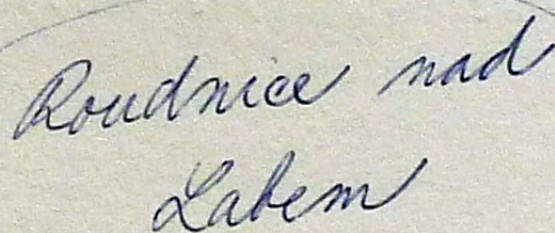 Roudnice nad
Labem